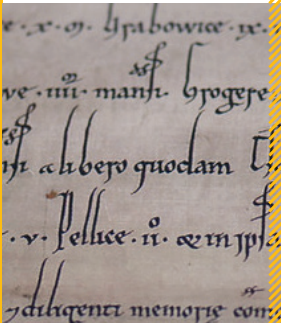 e · x · m · Grabowice · ix ·
ve · iiii · mansi · Grogere
a libero quodam
· v · Pellice · ii · & in ipso
diligenti memorie com